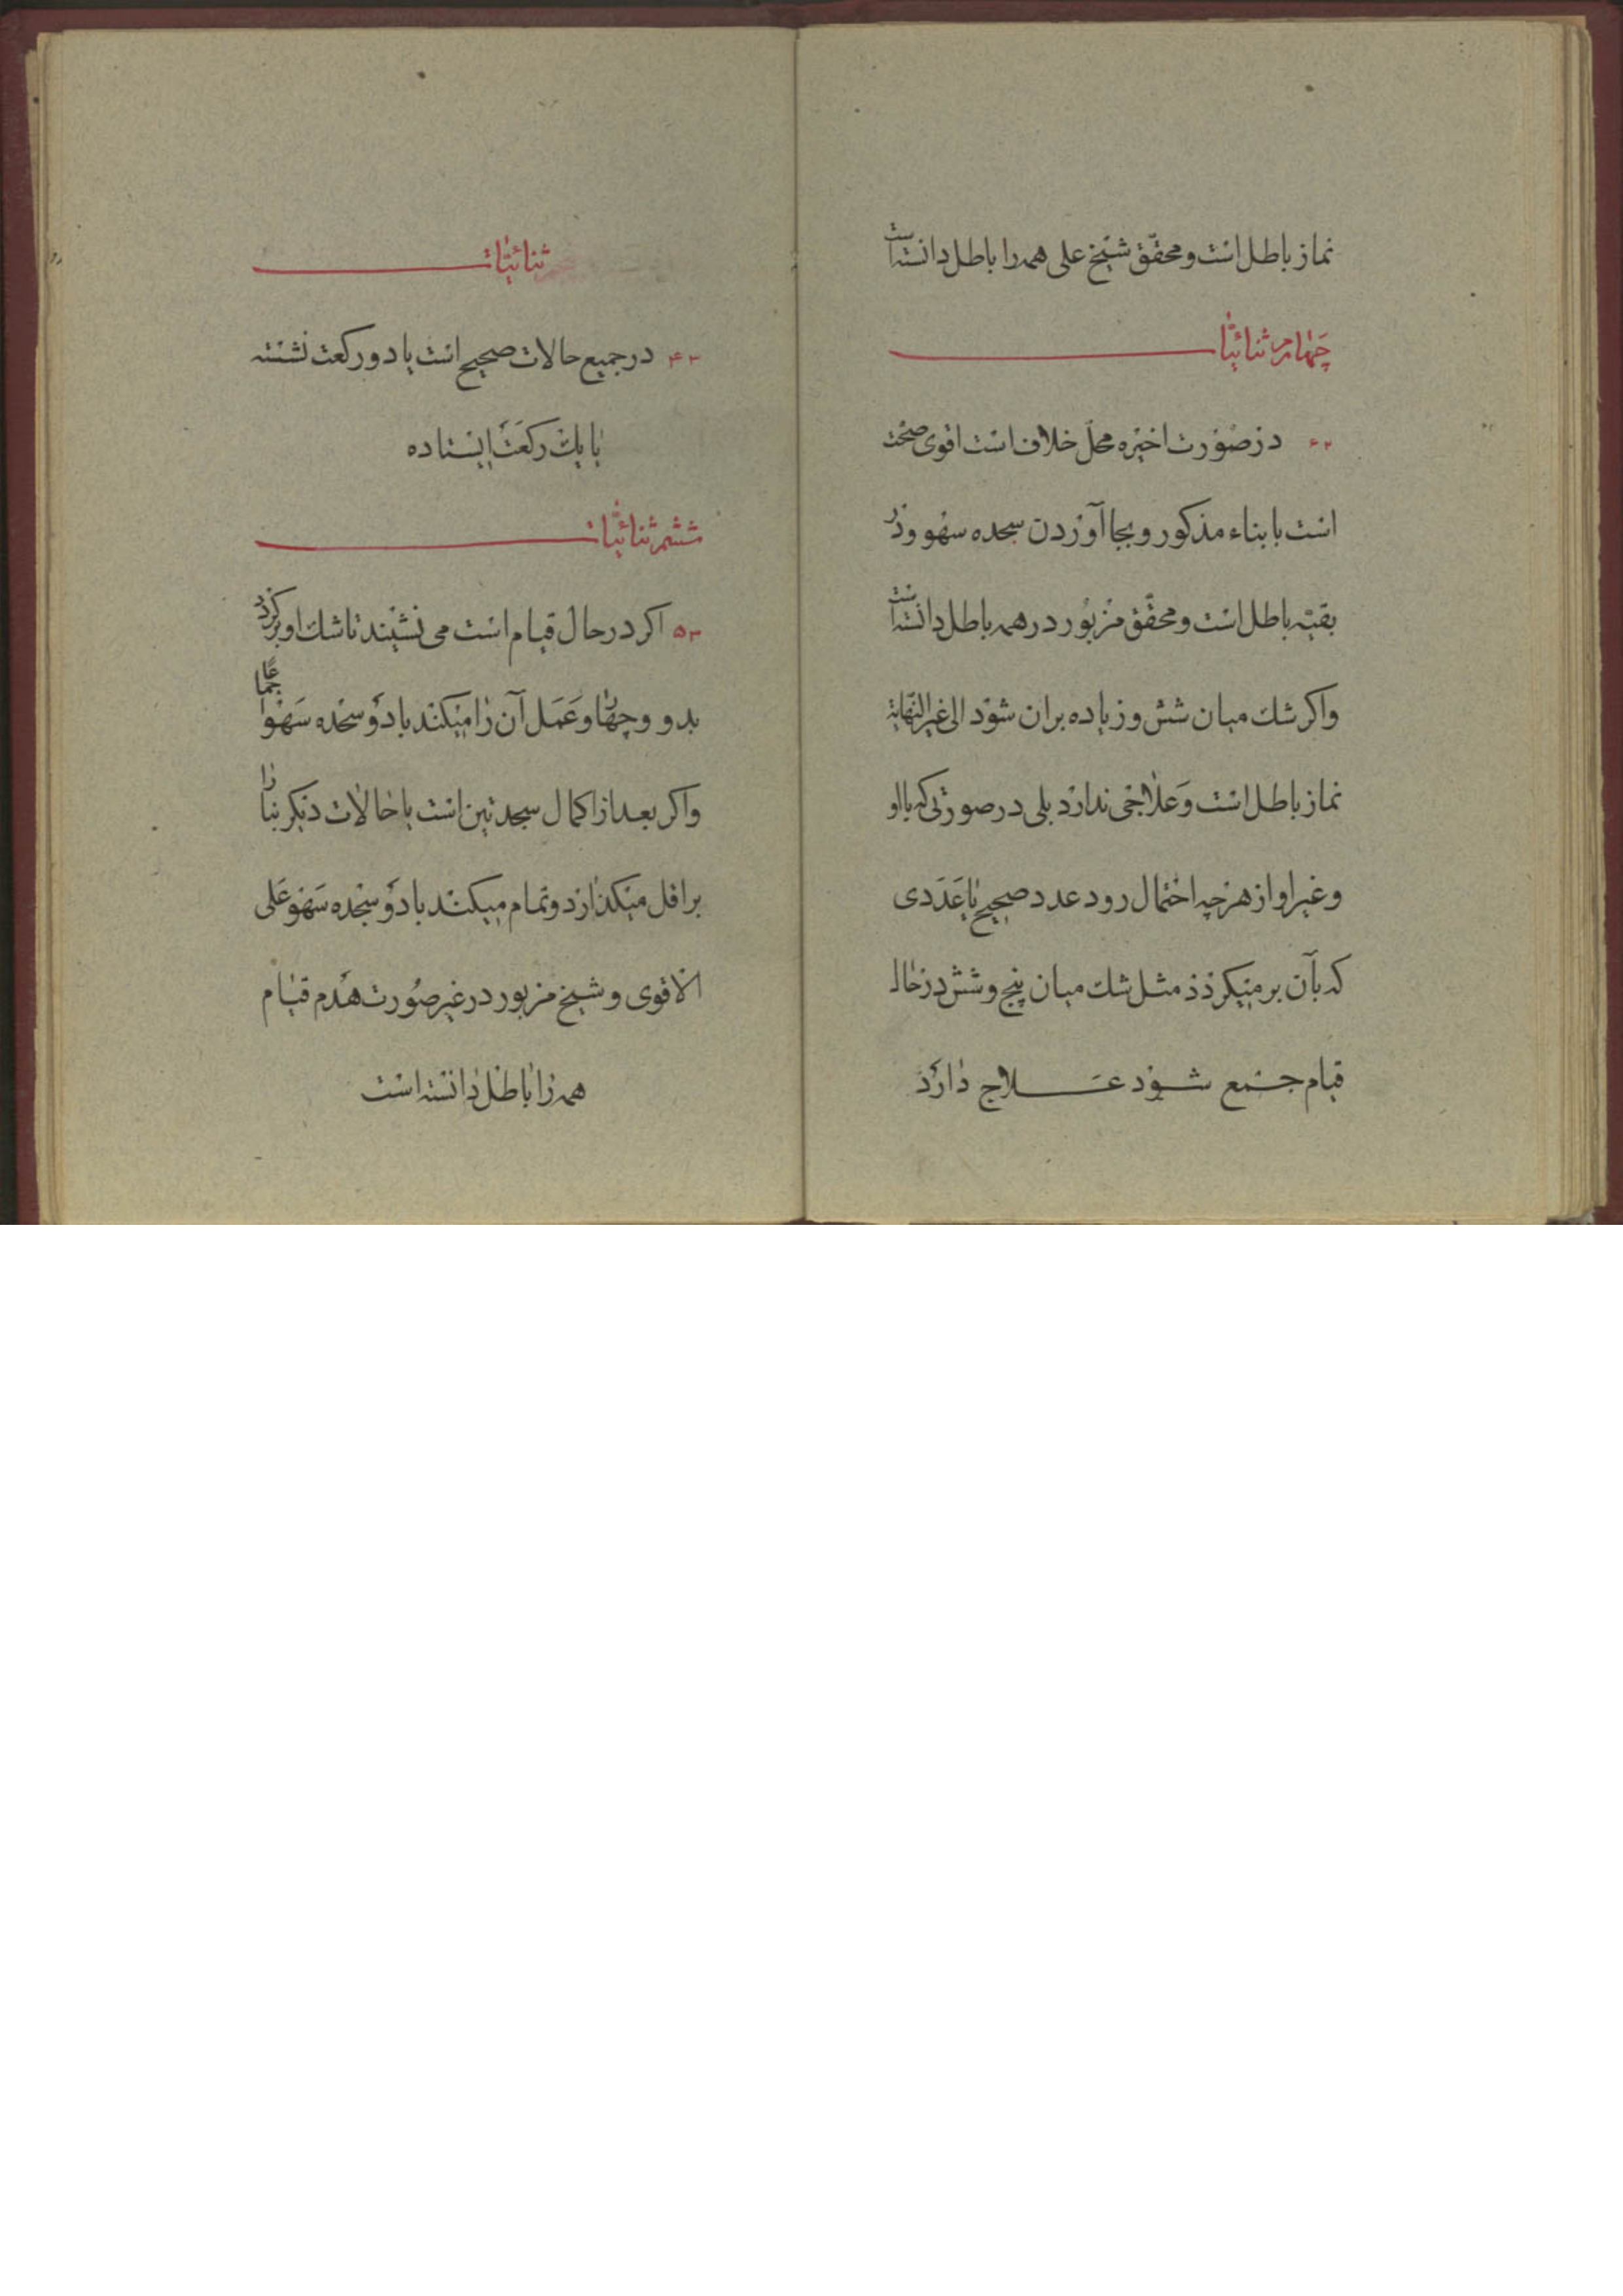 نماز باطل است و محقّق شیخ علی همه را باطل دانسته است
چهارم ثنائیّات
۲۶ در صورت اخیره محلّ خلاف است اقوی صحّت
است با بناء مذکور و بجا آوردن سجده سهو و در
بقیّه باطل است و محقّق مزبور در همه باطل دانسته است
واکر شك میان شش و زیاده بران شود الی غیر النّهایة
نماز باطل است و علاجی ندارد بلی در صورتی که با او
و غیر او از هر چه احتمال رود عدد صحیح یا عددی
که بآن بر میکردد مثل شك میان پنج و شش در حال
قیام جمع شود علاج دارد
ثنائیّات
۳۴ در جمیع حالات صحیح است با دو رکعت نشسته
یا یك رکعت ایستاده
ششم ثنائیّات
۳۵ اکر در حال قیام است می نشیند تا شك او بر کردد
بدو و چهار و عمل آن را میکند با دو سجده سهو اجماعا
واکر بعد از اکمال سجدتین است یا حالات دیکر بنا را
بر اقل میکذارد و تمام میکند با دو سجده سهو علی
الاقوی و شیخ مزبور در غیر صورت هدم قیام
همه را باطل دانسته است